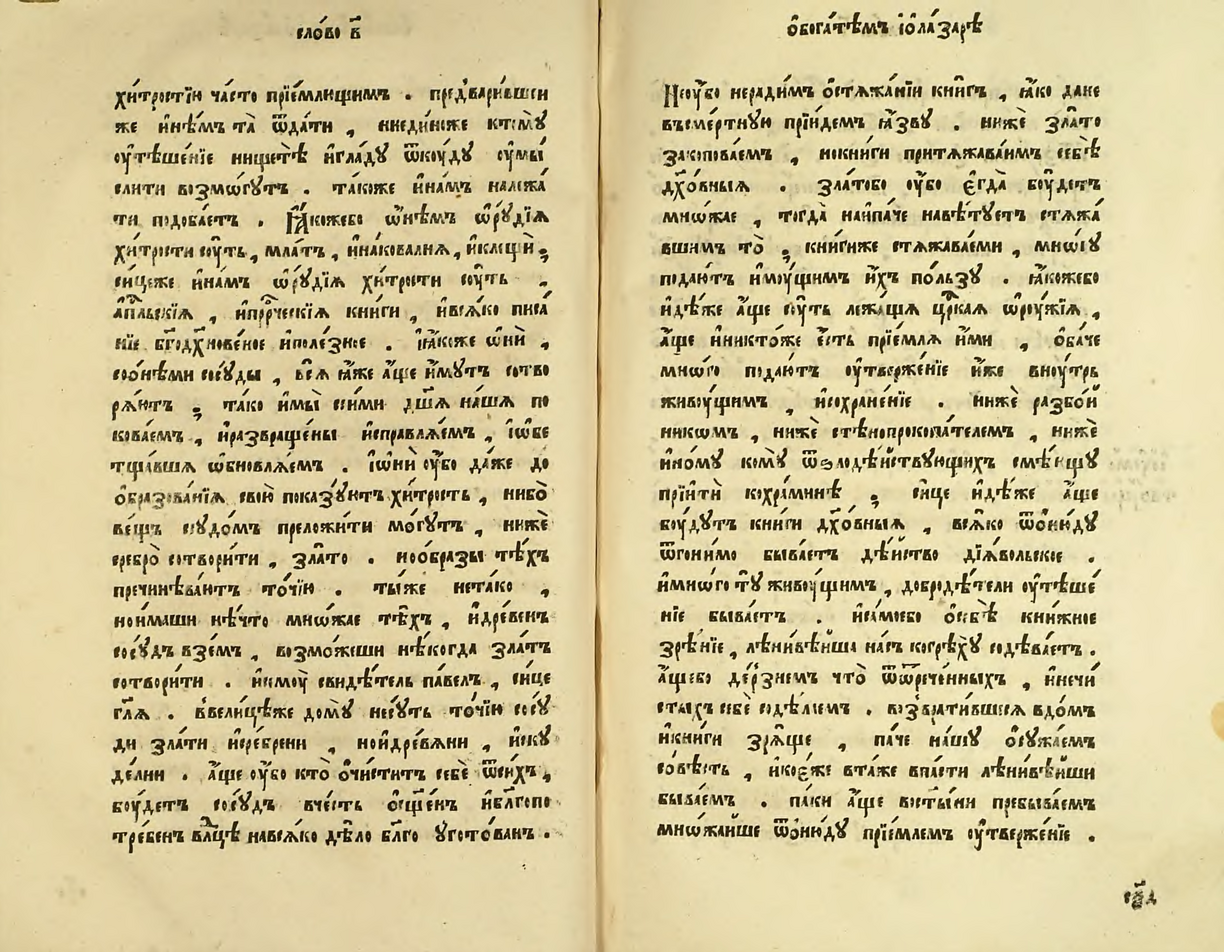 сло́во в҃
хи́тростїи ча́сто прїе́млищимъ . предвари́вшеи
же и҆нѣ́мъ та̀ ѿда́ти , ниеди́ноже ктомꙋ̀
оу҆тѣше́нїе нищетѣ̀ и҆гла́дꙋ ѿкоу́дꙋ оу҆мы́
слити возмо́гꙋтъ . та́коже и҆на́мъ належа́
ти подоба́етъ . Ꙗ҆́кожебо ѡ҆нѣ́мъ ѡ҆рꙋ́дїѧ
хи́трости сꙋ́ть , мла́тъ , и҆накова́лнѧ , и҆клещѝ ;
си́цеже и҆на́мъ ѡ҆рꙋ́дїѧ хи́трости сꙋ́ть ,
а҆пⷭ҇льскїѧ , и҆прⷪ҇рческїѧ книги , и҆всѧ́ко писа́
нїе бг҃одх҃нове́ное и҆поле́зное . ꙗ҆́коже ѡ҆нѝ ,
соѻ҆нѣ́ми сосꙋ́ды , всѧ̀ ꙗ҆́же а҆́ще и҆́мꙋтъ сотво
рѧ́ютъ ; та́ко и҆мы̀ си́ми дш҃а на́шѧ по
кова́емъ , и҆развраще́ны и҆справлѧ́емъ , і҆ѡ҆бе
тша́вшѧ ѡ҆бновлѧ́емъ . і҆ѡ҆нѝ оу҆́бо да́же до
ѻ҆бразова́нїѧ свою̀ показꙋ́ютъ хи́трость , нибо̀
ве́щь сꙋдо́мъ преложи́ти мо́гꙋтъ , нижѐ
сребро̀ сотвори́ти , зла́то . ноѻ҆́бразы тѣ́хъ
пречинѣва́ютъ то́чїю . ты́же нета́ко ,
ноима́ши нѣ́что мно́жае тѣ́хъ , и҆дре́венъ
сосꙋ́дъ взе́мъ , возмо́жеши нѣ́когда зла́тъ
сотвори́ти . и҆семоу̀ свидѣ́тель па́велъ , си́це
гл҃ѧ . вве́лицѣже домꙋ̀ несꙋ́ть то́чїю сосꙋ́
ди зла́ти и҆сре́брени , нои҆древѧ́ни , и҆скꙋ
де́лни . а҆́ще оу҆́бо кто̀ ѻ҆чи́стит себѐ ѿси́хъ ,
боу́детъ сосꙋ́дъ вче́сть ѻ҆сщ҃е́нъ и҆бл҃гопо
тре́бенъ влⷣцѣ навсѧ́ко дѣ́ло бл҃го оу҆гото́ванъ .
ѻ҆бога́тѣмъ і҆ѻ҆ла́зарѣ
Неоу҆́бо неради́мъ ѻ҆стѧжа́нїи кни́гъ , ꙗ҆́ко дане
всме́ртнꙋю прїи́демъ ꙗ҆́звꙋ . нижѐ зла́то
закопова́емъ , нокни́ги притѧжава́имъ себѣ̀
дх҃о́вныѧ . златобо оу҆́бо є҆гда̀ боу́детъ
мно́жае , тогда̀ наипа́че навѣ́тꙋетъ стѧжа́
вшимъ то̀ ; кни́гиже стѧжава́еми , мно́гꙋ
подаю́тъ и҆моу́щимъ и҆́хъ по́льзꙋ . ꙗ҆́кожебо
и҆дѣ́же а҆́ще сꙋ́ть лежа́щѧ црⷭ҇каѧ ѡ҆роу́жїѧ ,
а҆́ще и҆никто́же є҆́сть прїе́млѧ и҆́ми , ѻ҆ба́че
мно́го подаю́тъ оу҆твержде́нїе и҆́же вноу́трь
живоу́щимъ , и҆сохране́нїе . нижѐ разбо́и
нико́мъ , нижѐ стѣнопрокопа́телемъ , нижѐ
и҆но́мꙋ комꙋ̀ ѿѕлодѣ́йствꙋющихъ смѣ́ющꙋ
прїитѝ кохра́минѣ ; си́це и҆дѣ́же а҆́ще
боу́дꙋтъ кни́ги дх҃о́вныѧ , всѧ́ко ѿѻ҆ню́дꙋ
ѿгони́мо быва́етъ дѣ́йство дїѧ́вольское .
и҆мно́го тꙋ̀ живоу́щимъ , добродѣ́тели оу҆тѣше́
нїе быва́етъ . и҆само́ебо ѻ҆себѣ̀ кни́жное
зрѣ́нїе , лѣни́вѣйша на́съ когрѣхꙋ̀ содѣ́ваетъ .
а҆́щебо де́рзнемъ что̀ ѿѡ҆рече́нныхъ , и҆нечи́
стыхъ себѐ содѣ́лаемъ . возврати́вшесѧ вдо́мъ
и҆кни́ги зрѧ́ще , па́че на́шꙋ ѻ҆сꙋжа́емъ
со́вѣсть , и҆кое́же вта́же впа́сти лѣни́вѣйши
быва́емъ . па́ки а҆́ще встыни пребыва́емъ
мно́жайше ѿѻ҆ню́дꙋ прїе́млемъ оу҆твержде́нїе .